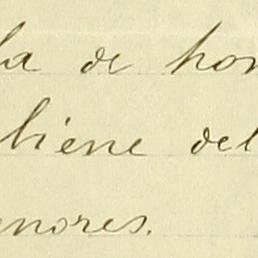 la de hon
tiene del
enores.